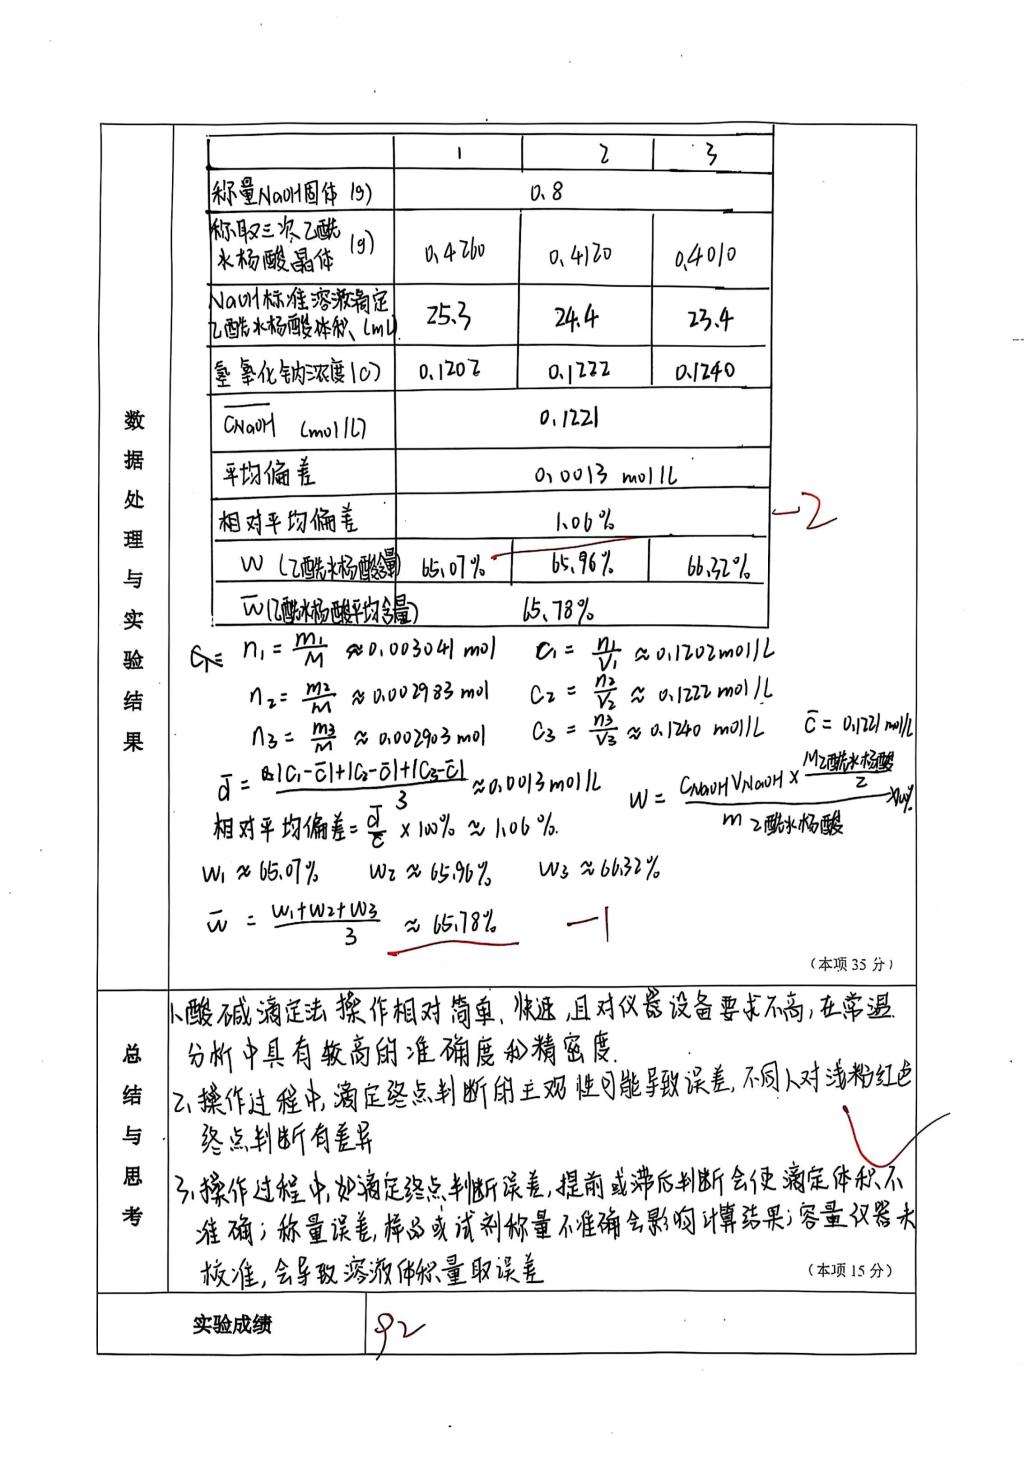 1 2 3
称量NaOH固体 (g) 0.8
称取三次乙酰
水杨酸晶体 (g) 0.4260 0.4120 0.4010
NaOH标准溶液滴定
乙酰水杨酸体积 (mL) 25.3 24.4 23.4
氢氧化钠浓度(c) 0.1202 0.1222 0.1240
C̅NaOH (mol/L) 0.1221
平均偏差 0.0013 mol/L
相对平均偏差 1.06%
-2
W (乙酰水杨酸含量) 65.07% 65.96% 66.32%
W̅(乙酰水杨酸平均含量) 65.78%
n₁ = m₁/M ≈ 0.003041 mol C₁ = n₁/V₁ ≈ 0.1202 mol/L
n₂ = m₂/M ≈ 0.002983 mol C₂ = n₂/V₂ ≈ 0.1222 mol/L
n₃ = m₃/M ≈ 0.002903 mol C₃ = n₃/V₃ ≈ 0.1240 mol/L C̅ = 0.1221 mol/L
d̅ = |C₁-C̅|+|C₂-C̅|+|C₃-C̅|/3 ≈ 0.0013 mol/L W = CNaOH VNaOH × M乙酰水杨酸/2 / m乙酰水杨酸 ×100%
相对平均偏差 = d̅/C̅ × 100% ≈ 1.06%.
W₁ ≈ 65.07% W₂ ≈ 65.96% W₃ ≈ 66.32%
W̅ = W₁+W₂+W₃/3 ≈ 65.78% -1
(本项 35 分)
数据处理与实验结果
1.酸碱滴定法操作相对简单、快速,且对仪器设备要求不高,在常温
分析中具有较高的准确度和精密度.
2.操作过程中,滴定终点判断的主观性可能导致误差,不同人对浅粉红色
终点判断有差异
3.操作过程中,如滴定终点判断误差,提前或滞后判断会使滴定体积不
准确;称量误差,样品或试剂称量不准确会影响计算结果;容量仪器未
校准,会导致溶液体积量取误差
(本项 15 分)
总结与思考
实验成绩 92